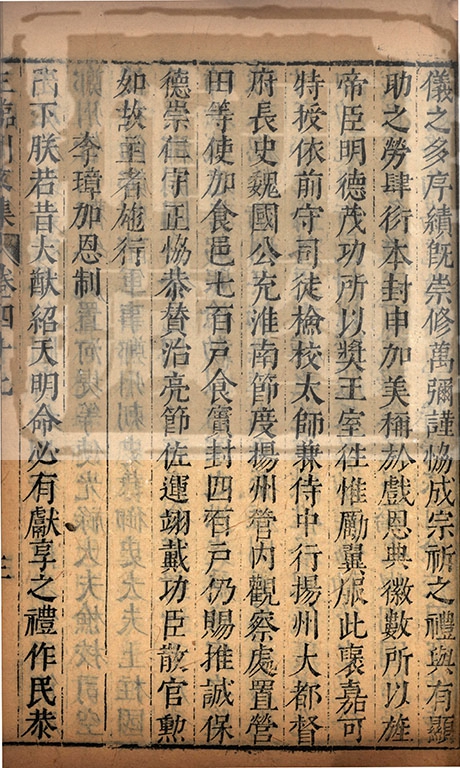 儀之多序績旣崇修萬彌謹恊成宗祈之禮與有顯
助之勞肆衍本封申加美稱於戲恩典徽數所以旌
帝臣明德茂功所以奬王室徃惟勵翼服此褒嘉可
特授依前守司徒檢校太師兼侍中行揚州大都督
府長史魏國公充淮南節度揚州管內觀察處置營
田等使加食邑七百戸食實封四百戸仍賜推誠保
德崇仁守正恊恭賛治亮節佐運翊戴功臣散官勲
如故主者施行
李璋加恩制
門下朕若昔大猷紹天明命必有獻享之禮作民恭
王臨川文集 卷四十七 三